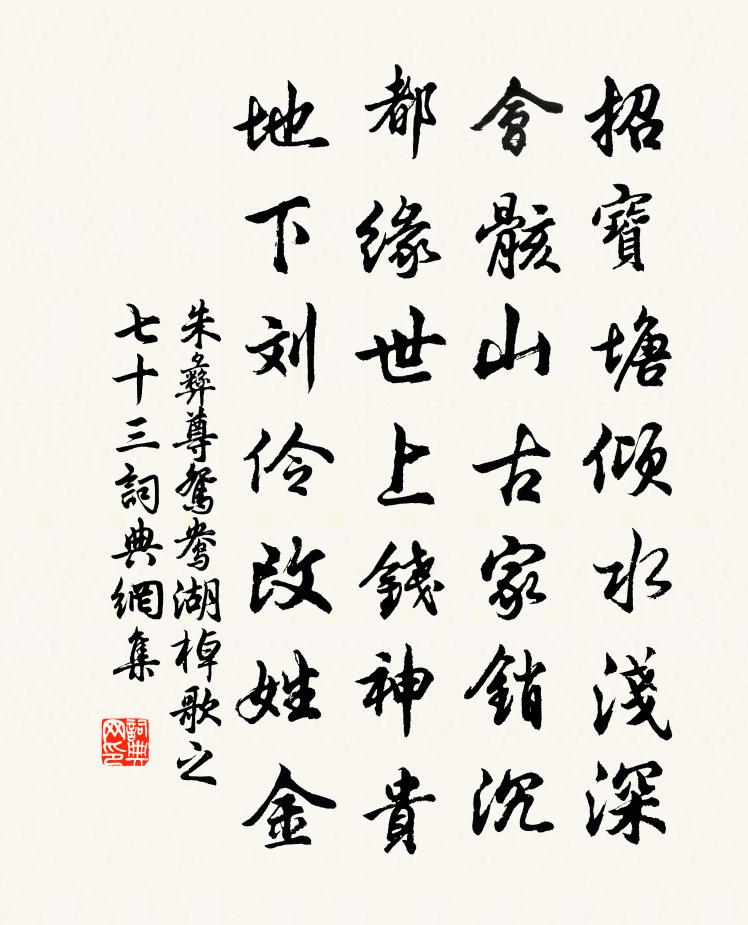 招寶塘傾水淺深
會骸山古冢銷沉
都緣世上錢神貴
地下刘伶改姓金
朱彝尊鴛鴦湖棹歌之
七十三詞典網集
詞典网印